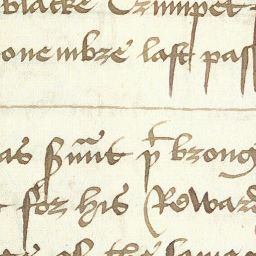 blacke Trumpet
ovembre last pas
as Srũnt p broug
for his Reward
of the same